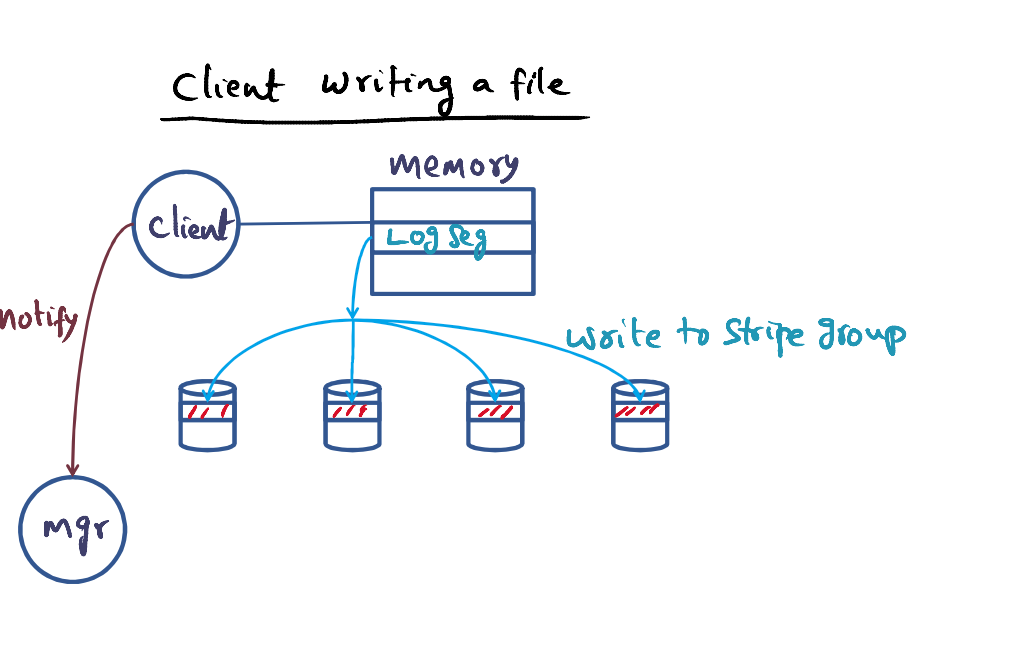 Client Writing a file
Memory
Client
Log Seg
notify
Write to Stripe group
mgr